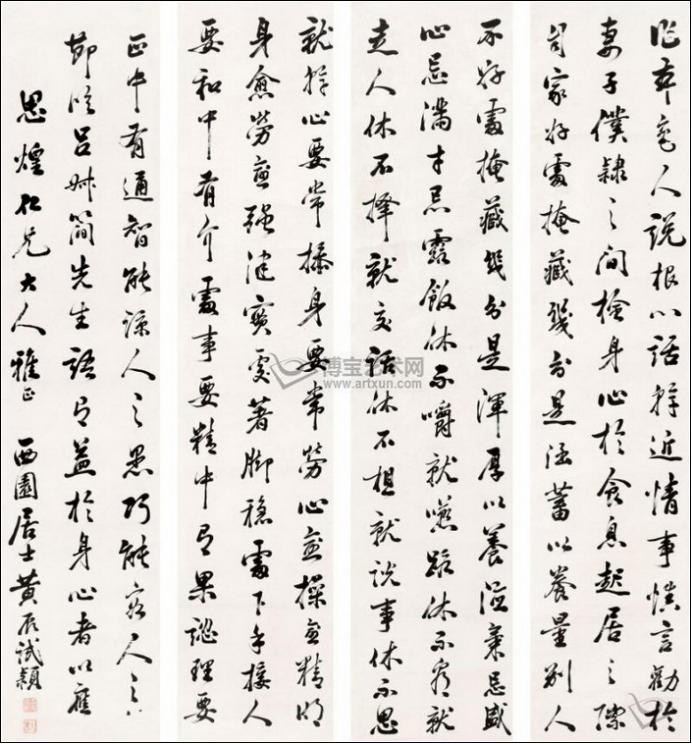 作本色人說根心話幹近情事慎言動於
妻子僕隸之間檢身心於食息起居之際
自家好處掩藏幾分是涵蓄以養量别人
不好處掩藏幾分是渾厚以養德氣忌盛
心忌滿才忌露飯休不嚼就嚥路休不看就
走人休不擇就交話休不想就說事休不思
就幹心要常操身要常勞心愈操愈精明
身愈勞愈强健實處著脚穩處下手接人
要和中有介處事要精中有果認理要
正中有通智能諒人之愚巧能容人之
節呂叔簡先生語有益於身心者以應
思煌仁兄大人雅正 西園居士黃辰試穎
博宝艺术网
www.artxun.com